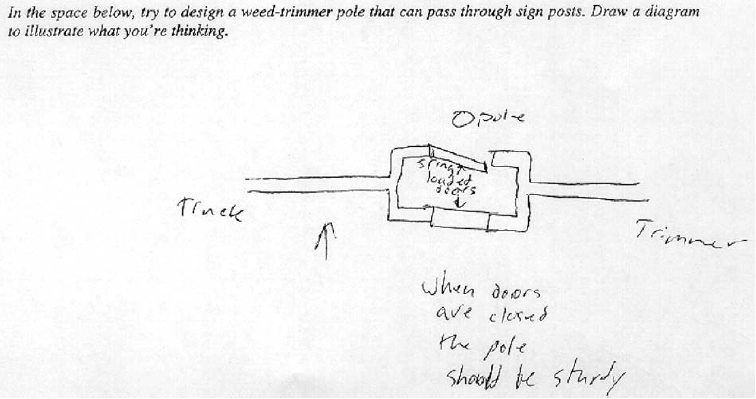 In the space below, try to design a weed-trimmer pole that can pass through sign posts. Draw a diagram
to illustrate what you're thinking.
pole
spring
loaded
doors
Truck
Trimmer
when doors
are closed
the pole
should be sturdy